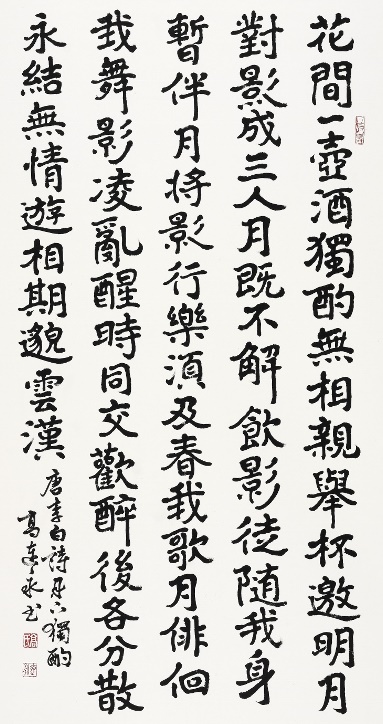 花間一壺酒獨酌無相親舉杯邀明月
對影成三人月既不解飲影徒隨我身
暫伴月將影行樂須及春我歌月俳佪
我舞影凌亂醒時同交歡醉後各分散
永結無情遊相期邈雲漢
唐李白詩月下獨酌
高連永书